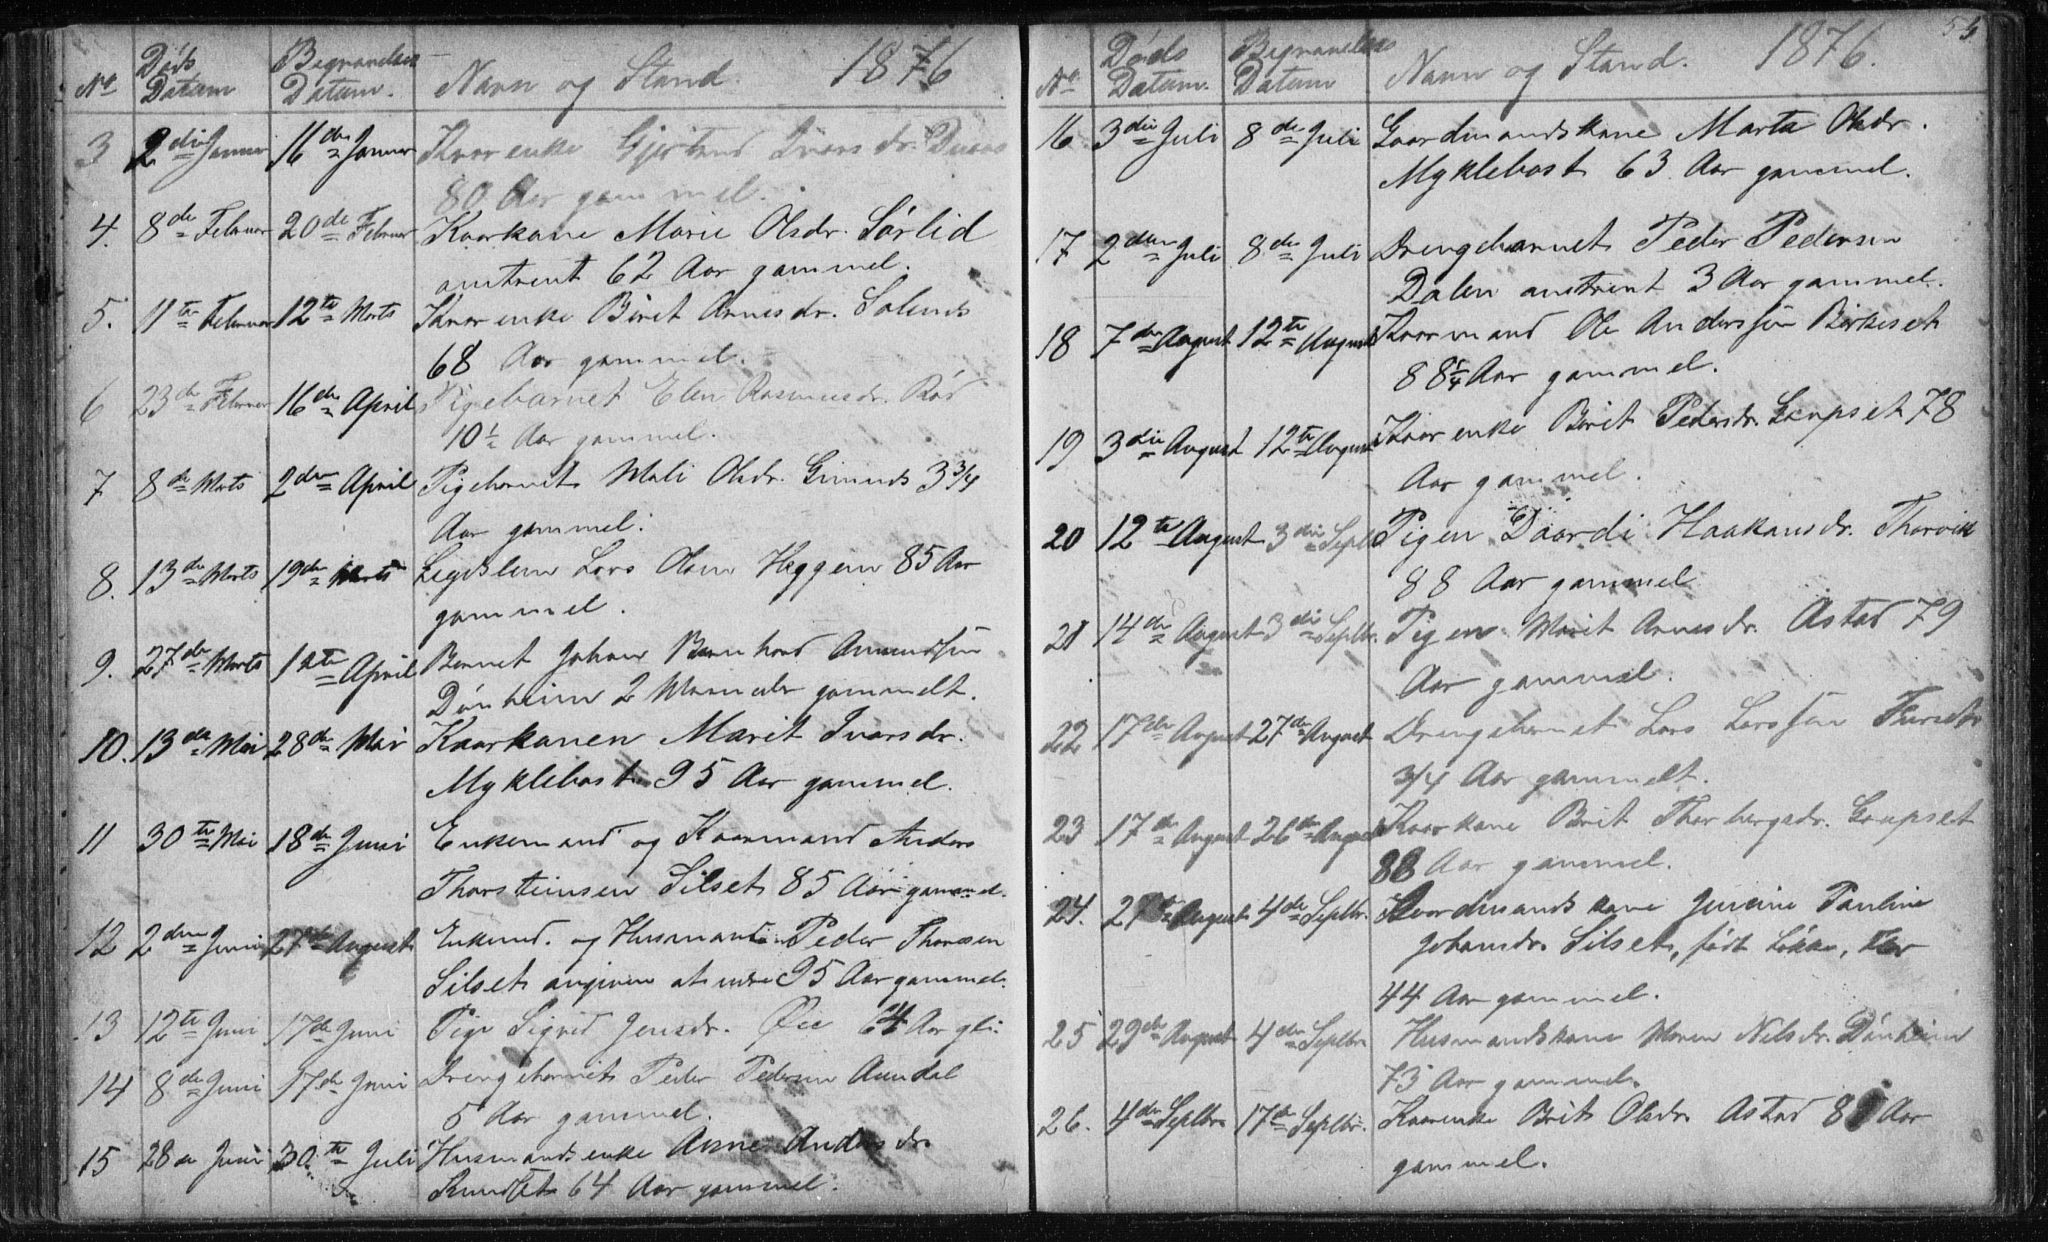 No Døds Datum Begravelses Datum. Navn og Stand. 1876
3 2den Januar 16de Januar Kaarenke Gjertrud Ivarsdr.
80 Aar gammel.
4. 8de Februar 20de Februar Kaarkone Marie Olsdr. Sørlid
omtrent 62 Aar gammel.
5. 11te Februar 12te Marts Kaarenke Berit Arnesdr. Solends
68 Aar gammel.
6 23de Februar 16de April Pigebarnet Elen Rasmusdr. Rød
10½ Aar gammel.
7 8de Marts 2den April Pigebarnet Mali Olsdr. Gimnes 3 3/4
Aar gammel.
8. 13de Marts 19de Marts Legdslem Lars Olsen Heggem 85 Aar
gammel.
9. 27de Marts 12te April Barnet Johan Bernhard Amundsen
Dønheim 2 Maaneder gammelt.
10. 13de Mai 28de Mai Kaarkonen Marit Ivarsdr.
Myklebost 95 Aar gammel.
11 30te Mai 18de Juni Enkemand og Kaarmand Anders
Thorsteinsen Silset 85 Aar gammel.
12 2den Juni 27de August Enkemd. og Husmand Peder Thoresen
Silset angiven at være 95 Aar gammel.
13 12te Juni 17de Juni Pige Sigrid Jensdr. Øie 64 Aar gl.
14 8de Juni 17de Juni Drengebarnet Peder Pedersen Aundal
5 Aar gammel.
15 28de Juni 30te Juli Husmandsenke Anne Andersdr.
64 Aar gammel.
No Døds Datum. Begravelses Datum Navn og Stand. 1876.
16 3die Juli 8de Juli Gaardmandskone Marta Olsdr.
Myklebost 63 Aar gammel.
17 2den Juli 8de Juli Drengebarnet Peder Pedersen
Dalen omtrent 3 Aar gammel.
18 7de August 12te August Kaarmand Ole Andersen Birkeset
88¼ Aar gammel.
19 3die August 12te August Kaarenke Berit Pedersdr. Gaupset 78
Aar gammel.
20 12te August 3die Septbr. Pigen Daardi Haakansdr. Thorvik
88 Aar gammel
21 14de August 3die Septbr. Pigen Marit Arnesdr. Astad 79
Aar gammel.
22 17de August 27de August Drengebarnet Lars Larssen Furset
3/4 Aar gammelt.
23 17de August 26de August Kaarkone Brit Thorbergsdr. Gaupset
88 Aar gammel.
24. 27de August 4de Septbr. Gaardmandskone Pauline
Johansdr. Silset, født Løkke,
44 Aar gammel.
25 29de August 4de Septbr. Husmandskone Maren Nilsdr. Dønheim
73 Aar gammel.
26. 4de Septbr. 17de Septbr. Kaarenke Brit Olsdr. Astad Aar
gammel.